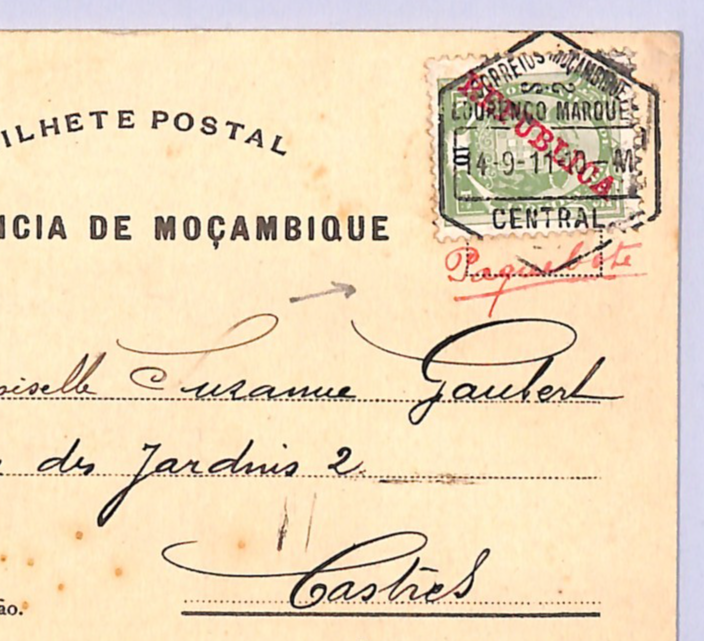 ILHETE POSTAL
CORREIOS MOÇAMBIQUE
LOURENÇO MARQUE
14-9-11
M
CENTRAL
REPUBLICA
NCIA DE MOÇAMBIQUE
Paquebote
oiselle Suzanne Gaubert
des Jardins 2
Castres
ão.